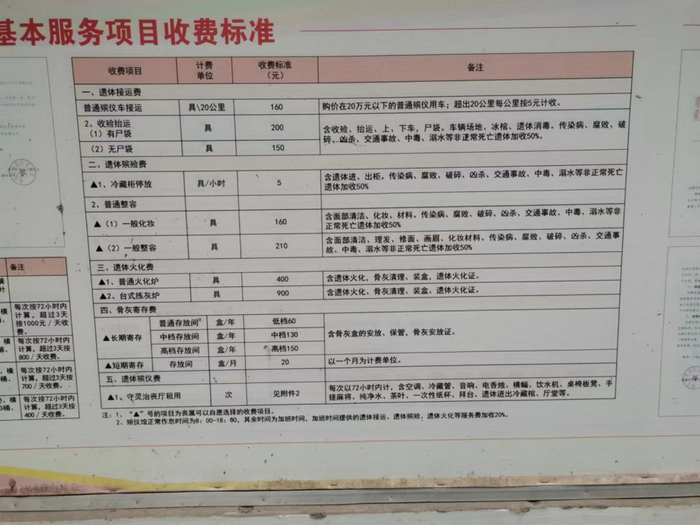 基本服务项目收费标准
收费项目 计费单位 收费标准（元） 备注
一、遗体接运费
普通殡仪车接运 具\20公里 160 购价在20万元以下的普通殡仪用车；超出20公里每公里按5元计收。
2、收殓抬运
（1）有尸袋 具 200 含收殓、抬运、上、下车，尸袋。车辆场地、冰棺、遗体消毒。传染病、腐败、破碎、凶杀、交通事故、中毒、溺水等非正常死亡遗体加收50%
（2）无尸袋 具 150
二、遗体殡殓费
▲1、冷藏柜停放 具/小时 5 含遗体进、出柜。传染病、腐败、破碎、凶杀、交通事故、中毒、溺水等非正常死亡遗体加收50%
2、普通整容
▲（1）一般化妆 具 160 含面部清洁、化妆、材料。传染病、腐败、破碎、凶杀、交通事故、中毒、溺水等非正常死亡遗体加收50%
▲（2）一般整容 具 210 含面部清洁、理发、修面、画眉、化妆材料。传染病、腐败、破碎、凶杀、交通事故、中毒、溺水等非正常死亡遗体加收50%
三、遗体火化费
▲1、普通火化炉 具 400 含遗体火化，骨灰清理、装盒，遗体火化证。
▲2、台式拣灰炉 具 900 含遗体火化，骨灰清理、装盒，遗体火化证。
四、骨灰寄存费
▲长期寄存 普通存放间 盒/年 低档60 含骨灰盒的安放、保管，骨灰安放证。
中档存放间 盒/年 中档130
高档存放间 盒/年 高档150
▲短期寄存 存放间 盒/月 20 以一个月为计费单位。
五、遗体殡仪费
▲1、守灵治丧厅租用 次 见附件2 每次以72小时内计，含空调、冷藏管、音响、电香烛、横幅、饮水机、桌椅板凳、手搓麻将、纯净水、茶叶、一次性纸杯、拜台、遗体进出冷藏棺、厅堂等。
注：1、“▲”号的项目为丧属可以自愿选择的收费项目。
2、殡仪馆正常作息时间为8：00-18：80，其余时间为加班时间，加班时间提供的遗体接运、遗体殡殓、遗体火化等服务费加收20%。
备注
每次按72小时内计算，超过3天按1000元/天收费。
每次按72小时内计算，超过3天按800/天收费
每次按72小时内计算，超过3天按700/天收费
每次按72小时内计算，超过3天按400/天收费